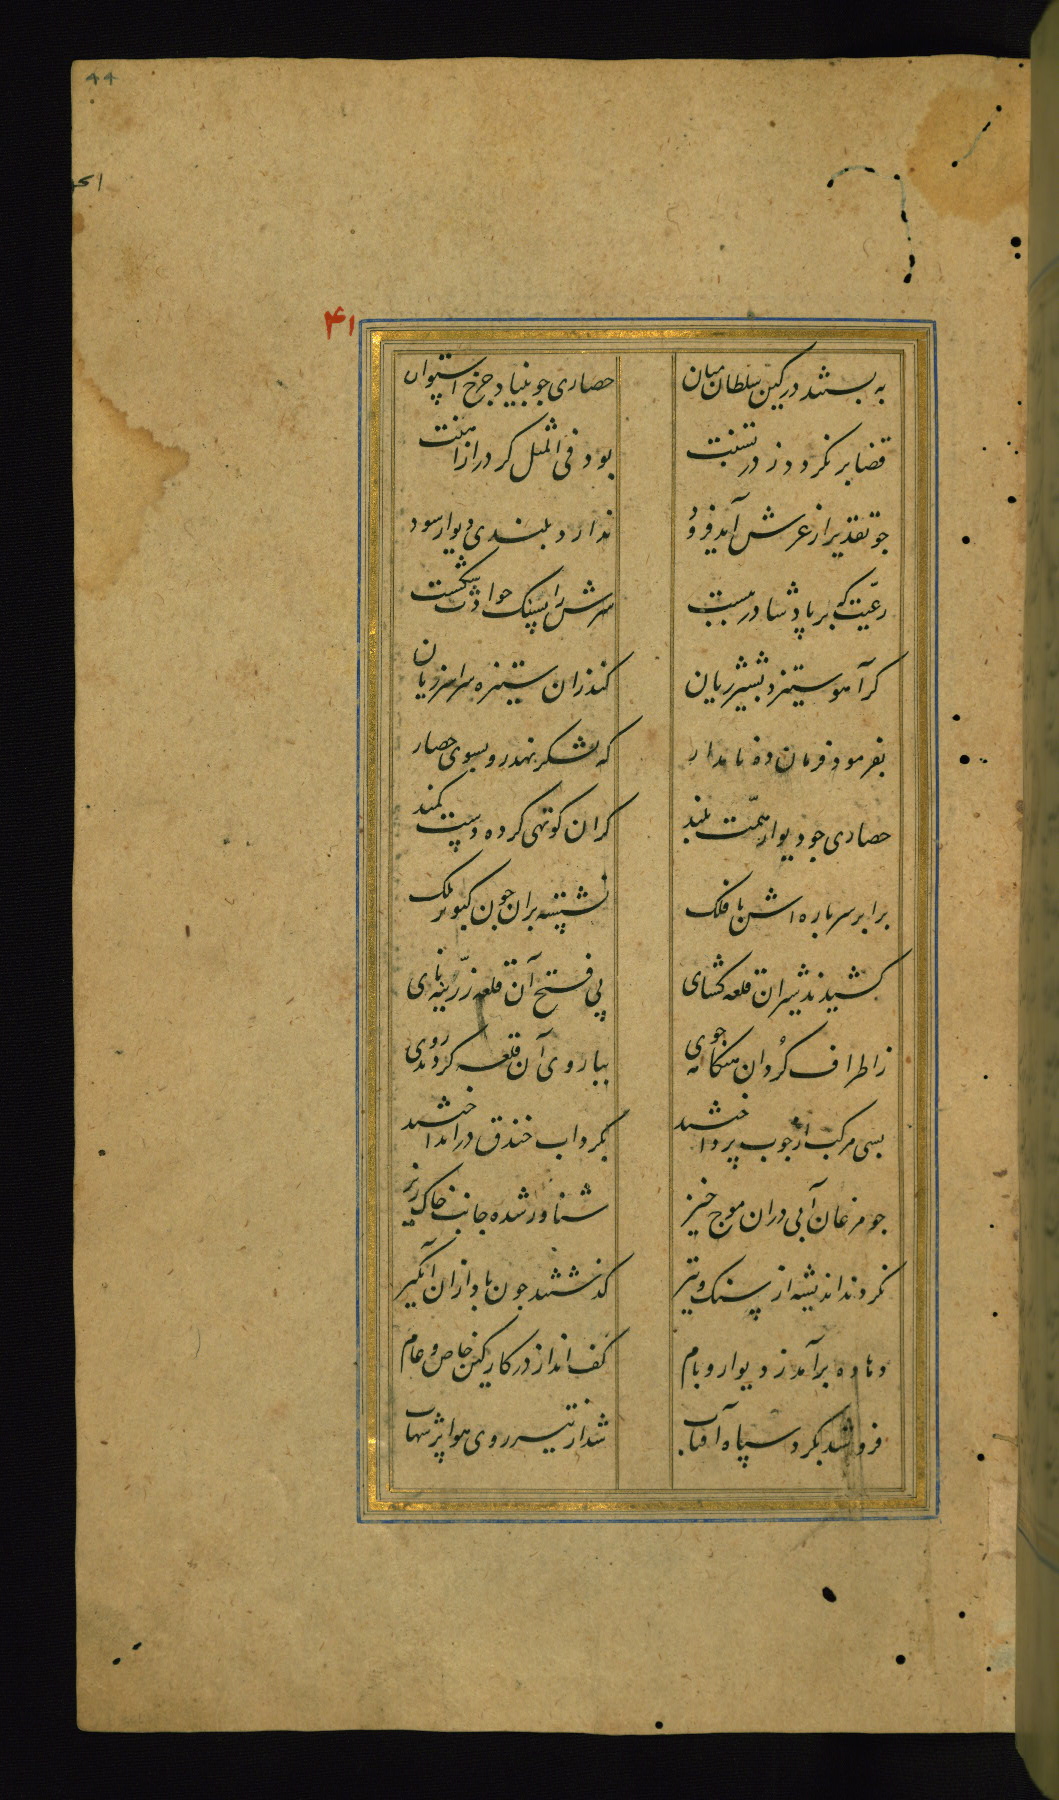 44
۴۱
به بستند در کین سلطان میان حصاری جو بنیاد جرخ استوان
قضا برنکردد ز در بست بود فی المثل کر در از
جو تقدیر از عرش آید فرود ندارد بلندی دیوار سود
رعیت که بر پادشا در ببست سرش را بسنک حوادث شکست
کر آهو ستیزد بشیر ژیان کند زان ستیزه سراسر زیان
بفرمود فرمان ده نامدار که لشکر نهد رو بسوی حصار
حصاری جو دیوار همّت بلند کزان کوتهی کرده دست کمند
برابر سر باره اش با فلک نشسته بران جون کبوتر ملک
کشیدند شیران قلعه کشای پی فتح آن قلعه زرینه نای
ز اطراف کُردان هنکامه جوی بباروی آن قلعه کردند روی
بسی مرکب از جوب پرداختند بکرداب خندق در انداختند
جو مرغان آبی دران موج خیز شناور شده جانب خاک ریز
نکردند اندیشه از سنک و تیر کذشتند جون باد ازان آبکیر
دهاده برآمد ز دیوار و بام کف انداز در کار کین خاص و عام
فرو شد بکرد سپاه آفتاب شد از تیر روی هوا پر شهاب